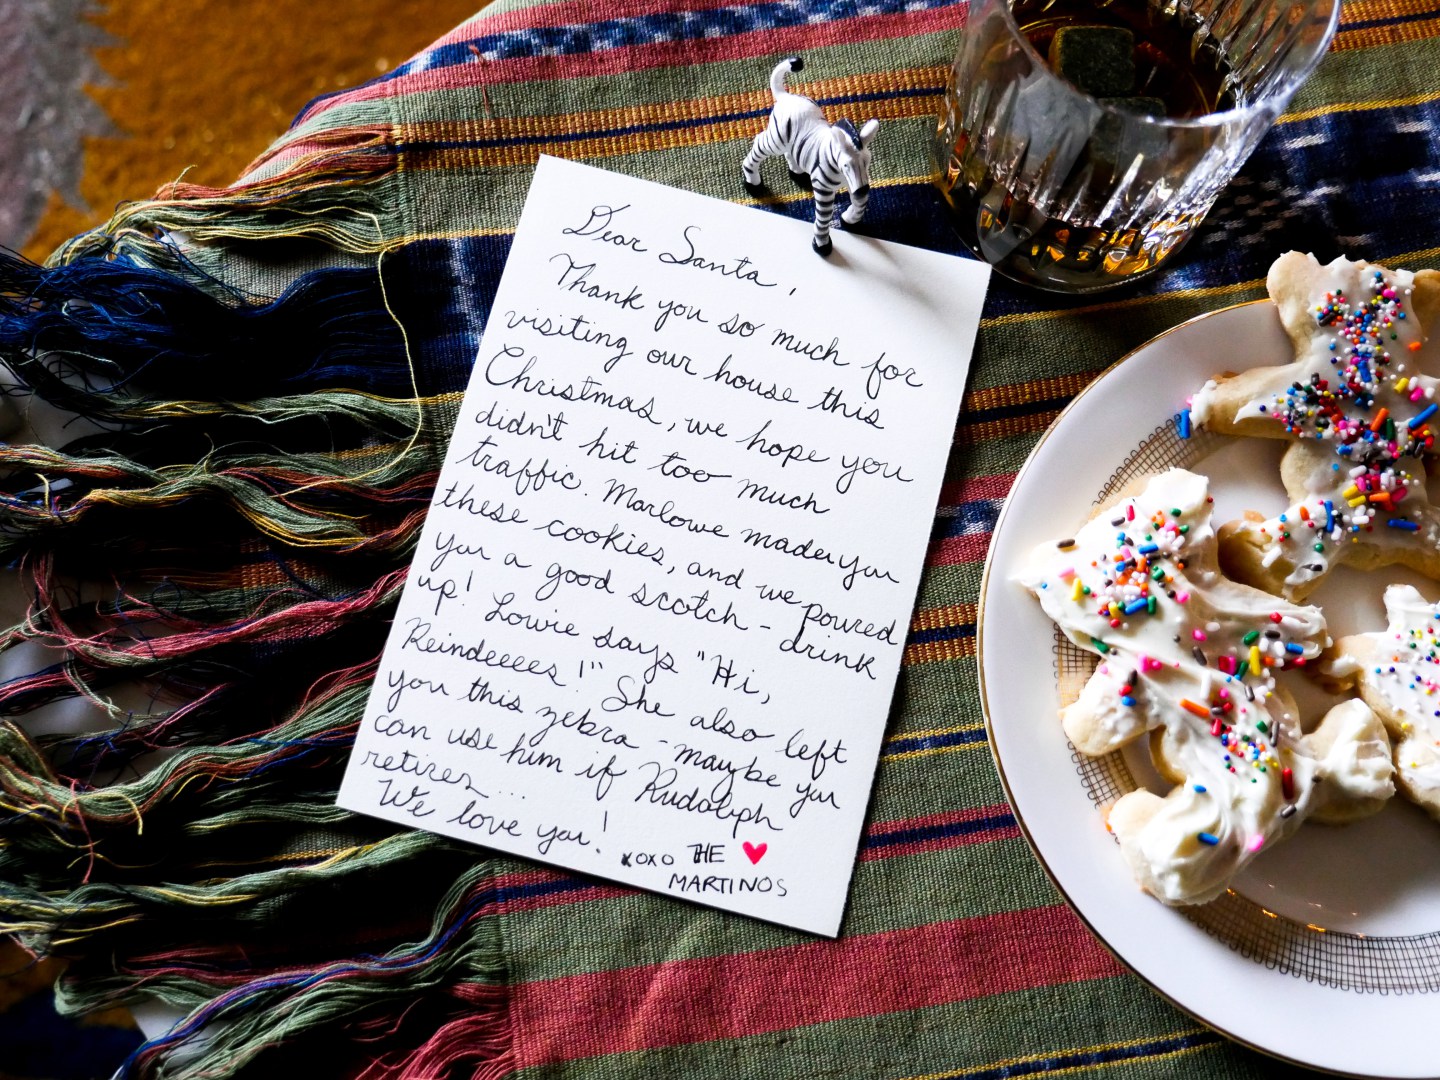 Dear Santa,
Thank you so much for
visiting our house this
Christmas, we hope you
didn't hit too much
traffic. Marlowe made you
these cookies, and we poured
you a good scotch - drink
up! Lowie says "Hi,
Reindeeees!" She also left
you this zebra - maybe you
can use him if Rudolph
retires...
We love you!
xoxo THE ♥
MARTINOS